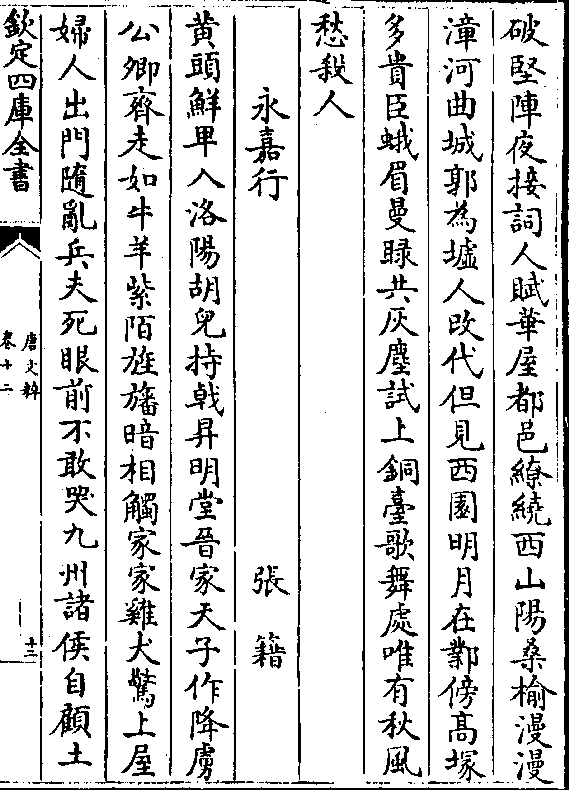 破堅陣夜接詞人賦華屋都邑繚繞西山陽桑榆漫漫
漳河曲城郭為墟人改代但見西園明月在鄴傍高塚
多貴臣蛾眉曼睩共灰塵試上銅臺歌舞處唯有秋風
愁殺人
永嘉行 張籍
黄頭鮮卑入洛陽胡兒持戟昇明堂晉家天子作降虜
公卿齊走如牛羊紫陌旌旛暗相觸家家雞犬驚上屋
婦人出門隨亂兵夫死眼前不敢哭九州諸侯自顧土
欽定四庫全書
唐文粹
卷十二
十二